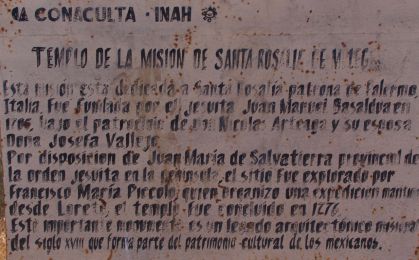 CONACULTA · INAH
TEMPLO DE LA MISION DE SANTA ROSALIE DE
Esta mision esta dedicada a Santa Rosalia patrona de Palermo,
Italia. Fue fundada por el jesuita Juan Manuel Basaldua en
1705, bajo el patrocinio de Don Nicolas Arteaga y su esposa
Dona Josefa Vallejo.
Por disposicion de Juan María de Salvatierra provincial de
la orden jesuita en la peninsula, el sitio fue explorado por
Francisco María Piccolo, quien organizo una expedicion
desde Loreto, el templo fue concluido en 1776.
Este importante monumento es un legado arquitectónico misional
del siglo XVIII que forma parte del patrimonio cultural de los mexicanos.